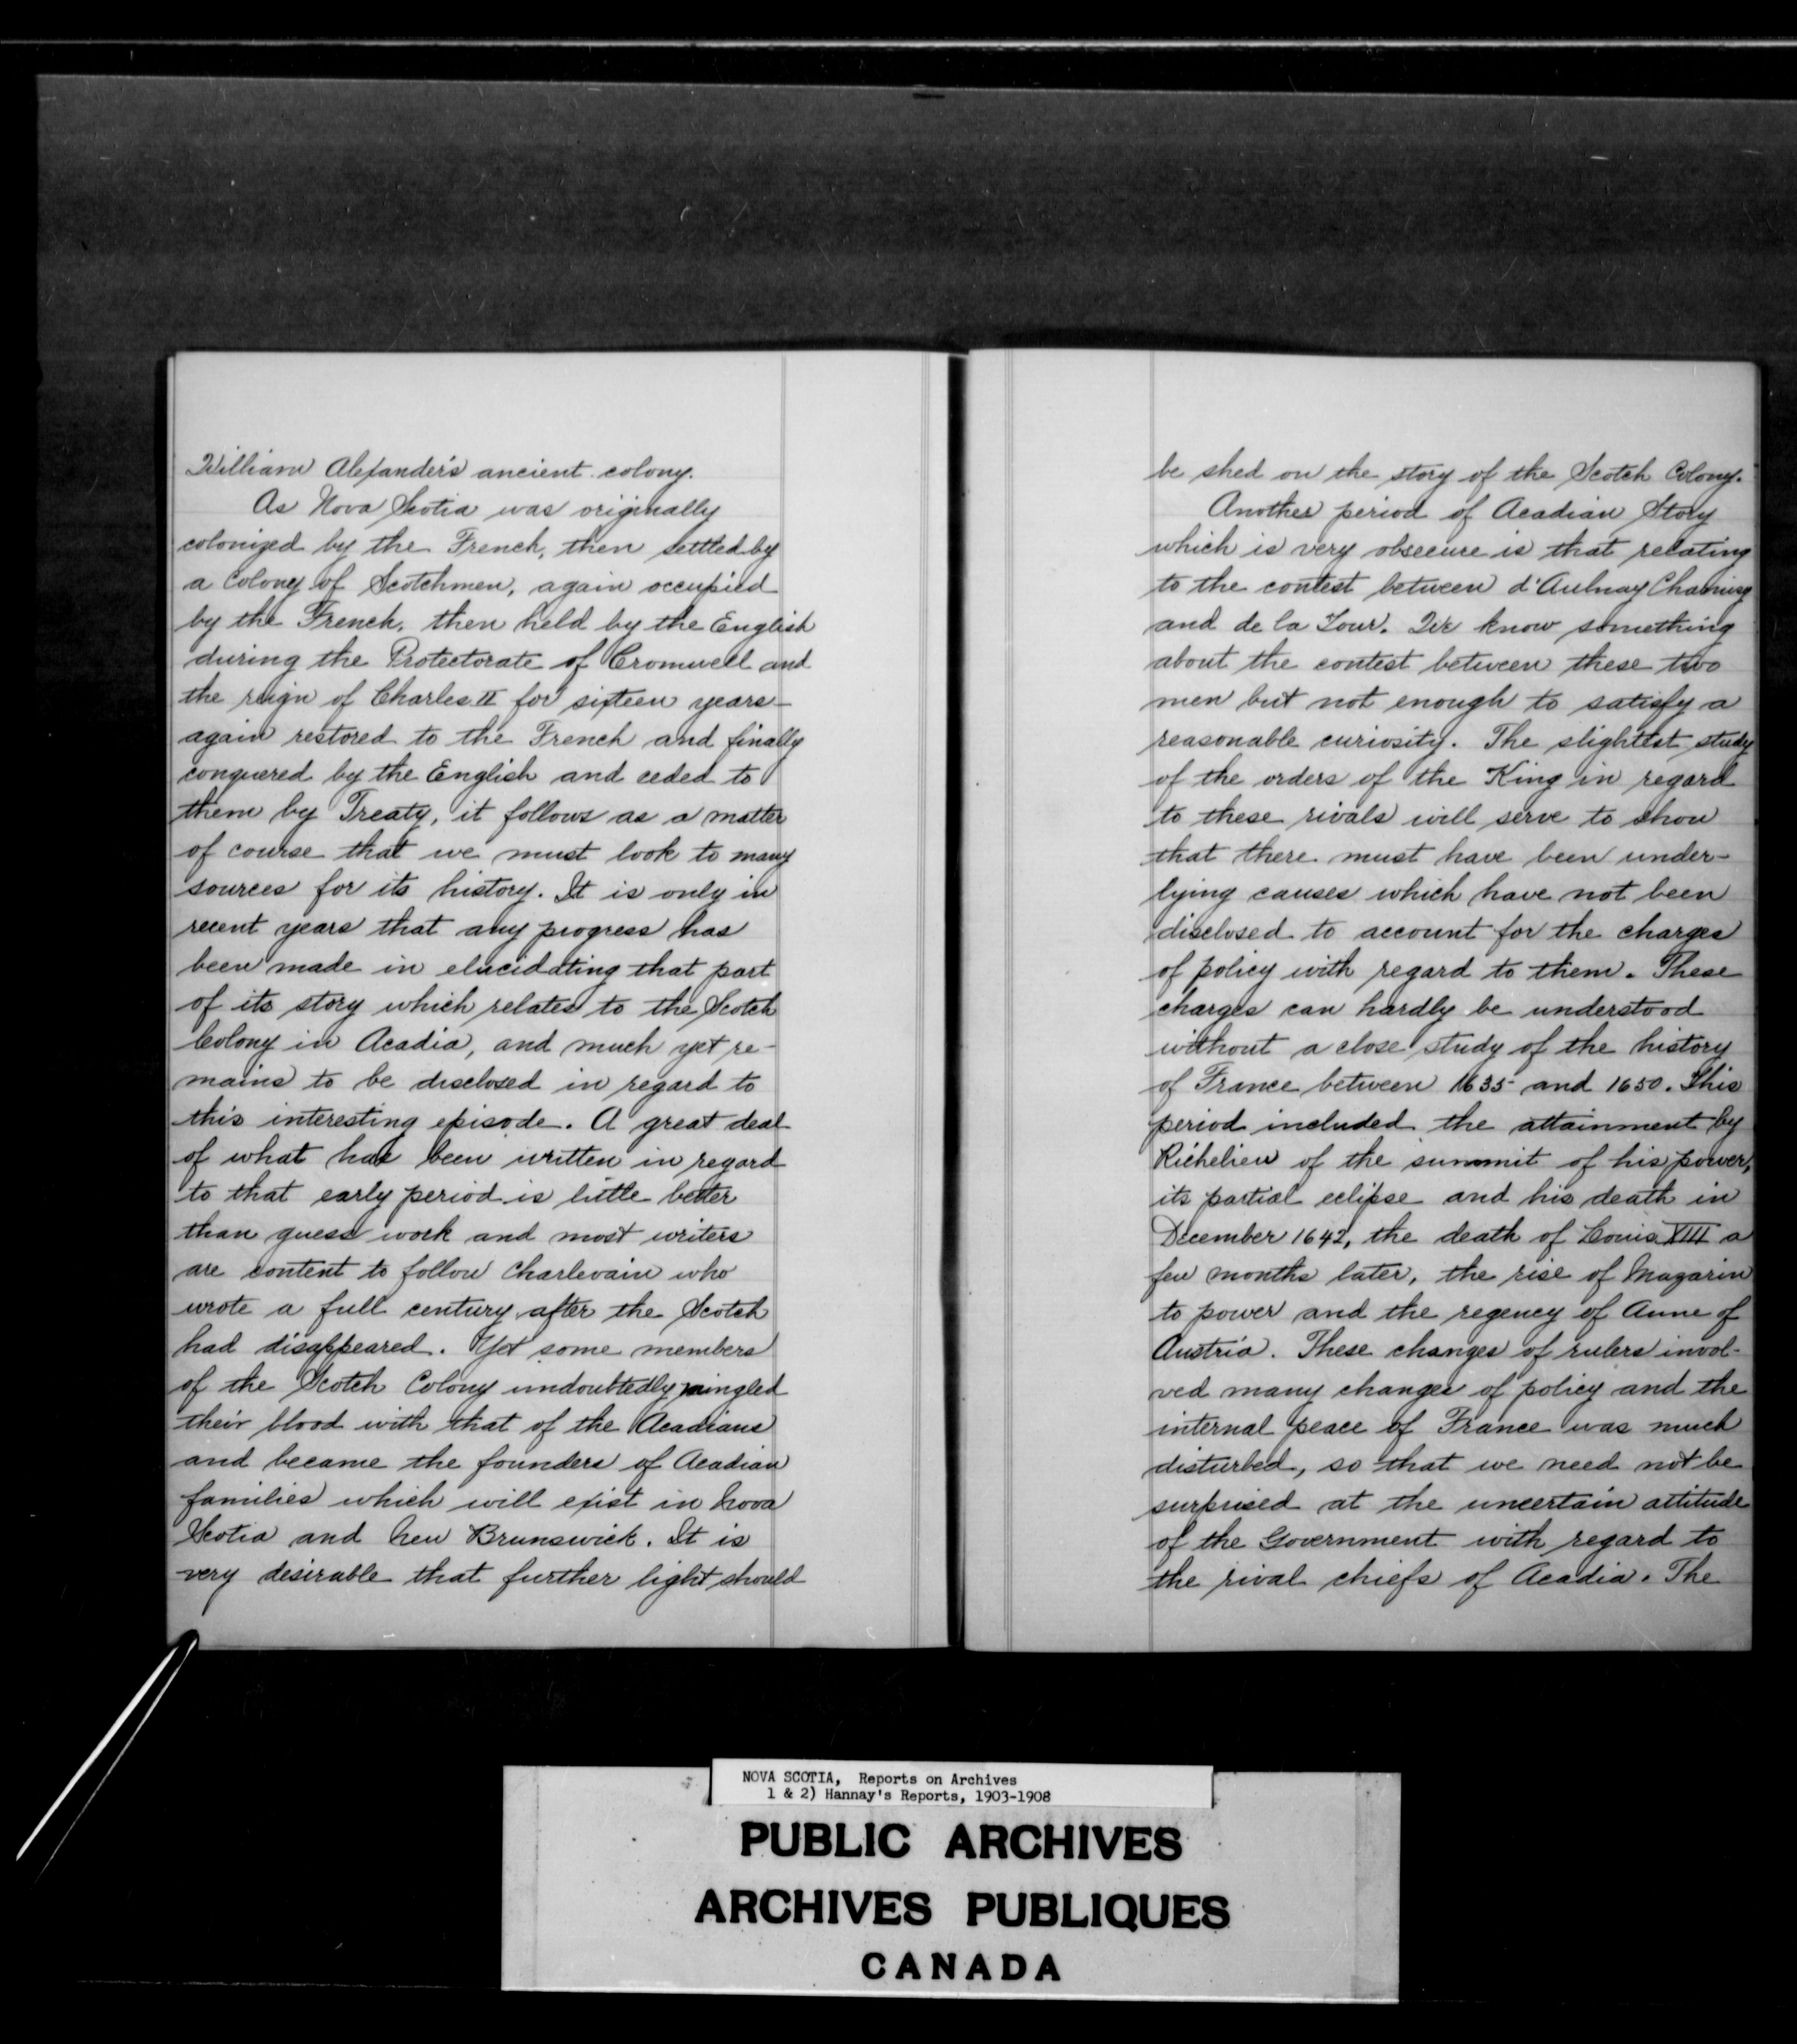 William Alexander's ancient colony.
As Nova Scotia was originally
colonized by the French, then settled by
a Colony of Scotchmen, again occupied
by the French, then held by the English
during the Protectorate of Cromwell and
the reign of Charles II for sixteen years—
again restored to the French and finally
conquered by the English and ceded to
them by Treaty, it follows as a matter
of course that we must look to many
sources for its history. It is only in
recent years that any progress has
been made in elucidating that part
of its story which relates to the Scotch
Colony in Acadia, and much yet re-
mains to be disclosed in regard to
this interesting episode. A great deal
of what has been written in regard
to that early period is little better
than guess work and most writers
are content to follow Charlevain who
wrote a full century after the Scotch
had disappeared. Yet some members
of the Scotch Colony undoubtedly mingled
their blood with that of the Acadians
and became the founders of Acadian
families which will exist in Nova
Scotia and New Brunswick. It is
very desirable that further light should
be shed on the story of the Scotch Colony.
Another period of Acadian Story
which is very obscure is that relating
to the contest between d'Aulnay Charnisy
and de la Tour. We know something
about the contest between these two
men but not enough to satisfy a
reasonable curiosity. The slightest study
of the orders of the King in regard
to these rivals will serve to show
that there must have been under-
lying causes which have not been
disclosed to account for the charges
of policy with regard to them. These
charges can hardly be understood
without a close study of the history
of France between 1635 and 1650. This
period included the attainment by
Richelieu of the summit of his power,
its partial eclipse and his death in
December 1642, the death of Louis XIII a
few months later, the rise of Mazarin
to power and the regency of Anne of
Austria. These changes of rulers invol-
ved many changes of policy and the
internal peace of France was much
disturbed, so that we need not be
surprised at the uncertain attitude
of the Government with regard to
the rival chiefs of Acadia. The
NOVA SCOTIA, Reports on Archives
1 & 2) Hannay's Reports, 1903-1908
PUBLIC ARCHIVES
ARCHIVES PUBLIQUES
CANADA